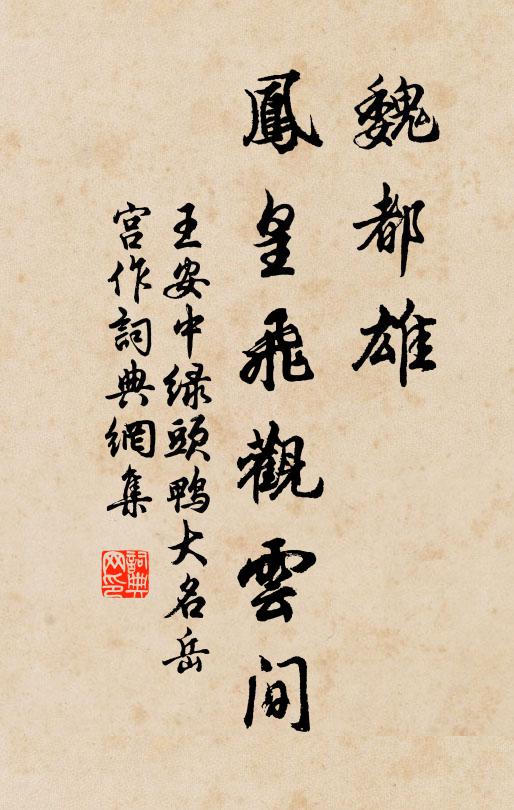 魏都雄
鳳皇飛觀雲间
王安中绿頭鴨大名岳
宫作詞典網集
詞典
网印